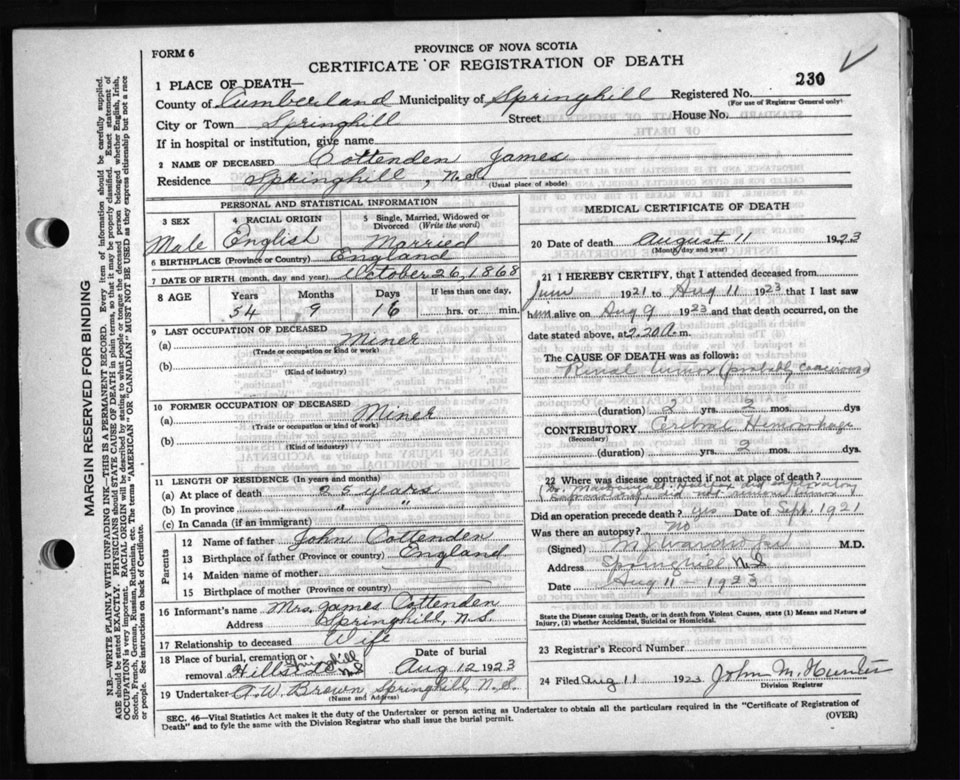 FORM 6
PROVINCE OF NOVA SCOTIA
CERTIFICATE OF REGISTRATION OF DEATH
230
1 PLACE OF DEATH—
County of Cumberland Municipality of Springhill Registered No.
(For use of Registrar General only)
City or Town Springhill Street House No.
If in hospital or institution, give name
2 NAME OF DECEASED Cottenden James
Residence Springhill, N.S.
(Usual place of abode)
PERSONAL AND STATISTICAL INFORMATION
3 SEX
Male
4 RACIAL ORIGIN
English
5 Single, Married, Widowed or Divorced (Write the word)
Married
6 BIRTHPLACE (Province or Country) England
7 DATE OF BIRTH (month, day and year) October 26, 1868
8 AGE Years Months Days If less than one day,
54 9 16 hrs. or min.
9 LAST OCCUPATION OF DECEASED
(a) Miner
(Trade or occupation or kind of work)
(b)
(Kind of industry)
10 FORMER OCCUPATION OF DECEASED
(a) Miner
(Trade or occupation or kind of work)
(b)
(Kind of industry)
11 LENGTH OF RESIDENCE (In years and months)
(a) At place of death years
(b) In province " "
(c) In Canada (if an immigrant)
Parents
12 Name of father John Cottenden
13 Birthplace of father (Province or country) England
14 Maiden name of mother
15 Birthplace of mother (Province or country)
16 Informant's name Mrs. James Cottenden
Address Springhill, N.S.
17 Relationship to deceased Wife
18 Place of burial, cremation or removal Hillside Springhill N.S.
Date of burial
Aug 12 1923
19 Undertaker A.W. Brown, Springhill, N.S.
(Name and Address)
MEDICAL CERTIFICATE OF DEATH
20 Date of death August 11 1923
(Month, day and year)
21 I HEREBY CERTIFY, that I attended deceased from
June 1921 to Aug 11 1923 that I last saw
him alive on Aug 9 1923 and that death occurred, on the
date stated above, at 2.20 A. m.
The CAUSE OF DEATH was as follows:
Renal tumor (probably
(duration) 2 yrs. 3 mos. dys
CONTRIBUTORY Cerebral Hemorrhage
(Secondary)
(duration) yrs. 3 mos. dys
22 Where was disease contracted if not at place of death?
did not remove tumor
Did an operation precede death? yes Date of Sept. 1921
Was there an autopsy? No
(Signed) M.D.
Address Springhill N.S
Date Aug 11 - 1923
State the Disease causing Death, or in death from Violent Causes, state (1) Means and Nature of Injury, (2) whether Accidental, Suicidal or Homicidal.
23 Registrar's Record Number
24 Filed Aug 11 1923 John M. Hunter
Division Registrar
SEC. 46—Vital Statistics Act makes it the duty of the Undertaker or person acting as Undertaker to obtain all the particulars required in the "Certificate of Registration of
Death" and to fyle the same with the Division Registrar who shall issue the burial permit.
(OVER)
MARGIN RESERVED FOR BINDING
N.B.—WRITE PLAINLY WITH UNFADING INK—THIS IS A PERMANENT RECORD. Every item of information should be carefully supplied.
AGE should be stated EXACTLY. PHYSICIANS should STATE CAUSE OF DEATH in plain terms, so that it may be properly classified. Exact statement of
OCCUPATION is very important. RACIAL ORIGIN will be described by stating to what people or tongue the deceased person belonged whether English, Irish,
Scotch, French, German, Russian, Ruthenian, etc. The terms "AMERICAN" OR "CANADIAN" MUST NOT BE USED as they express citizenship but not a race
or people. See instructions on back of Certificate.